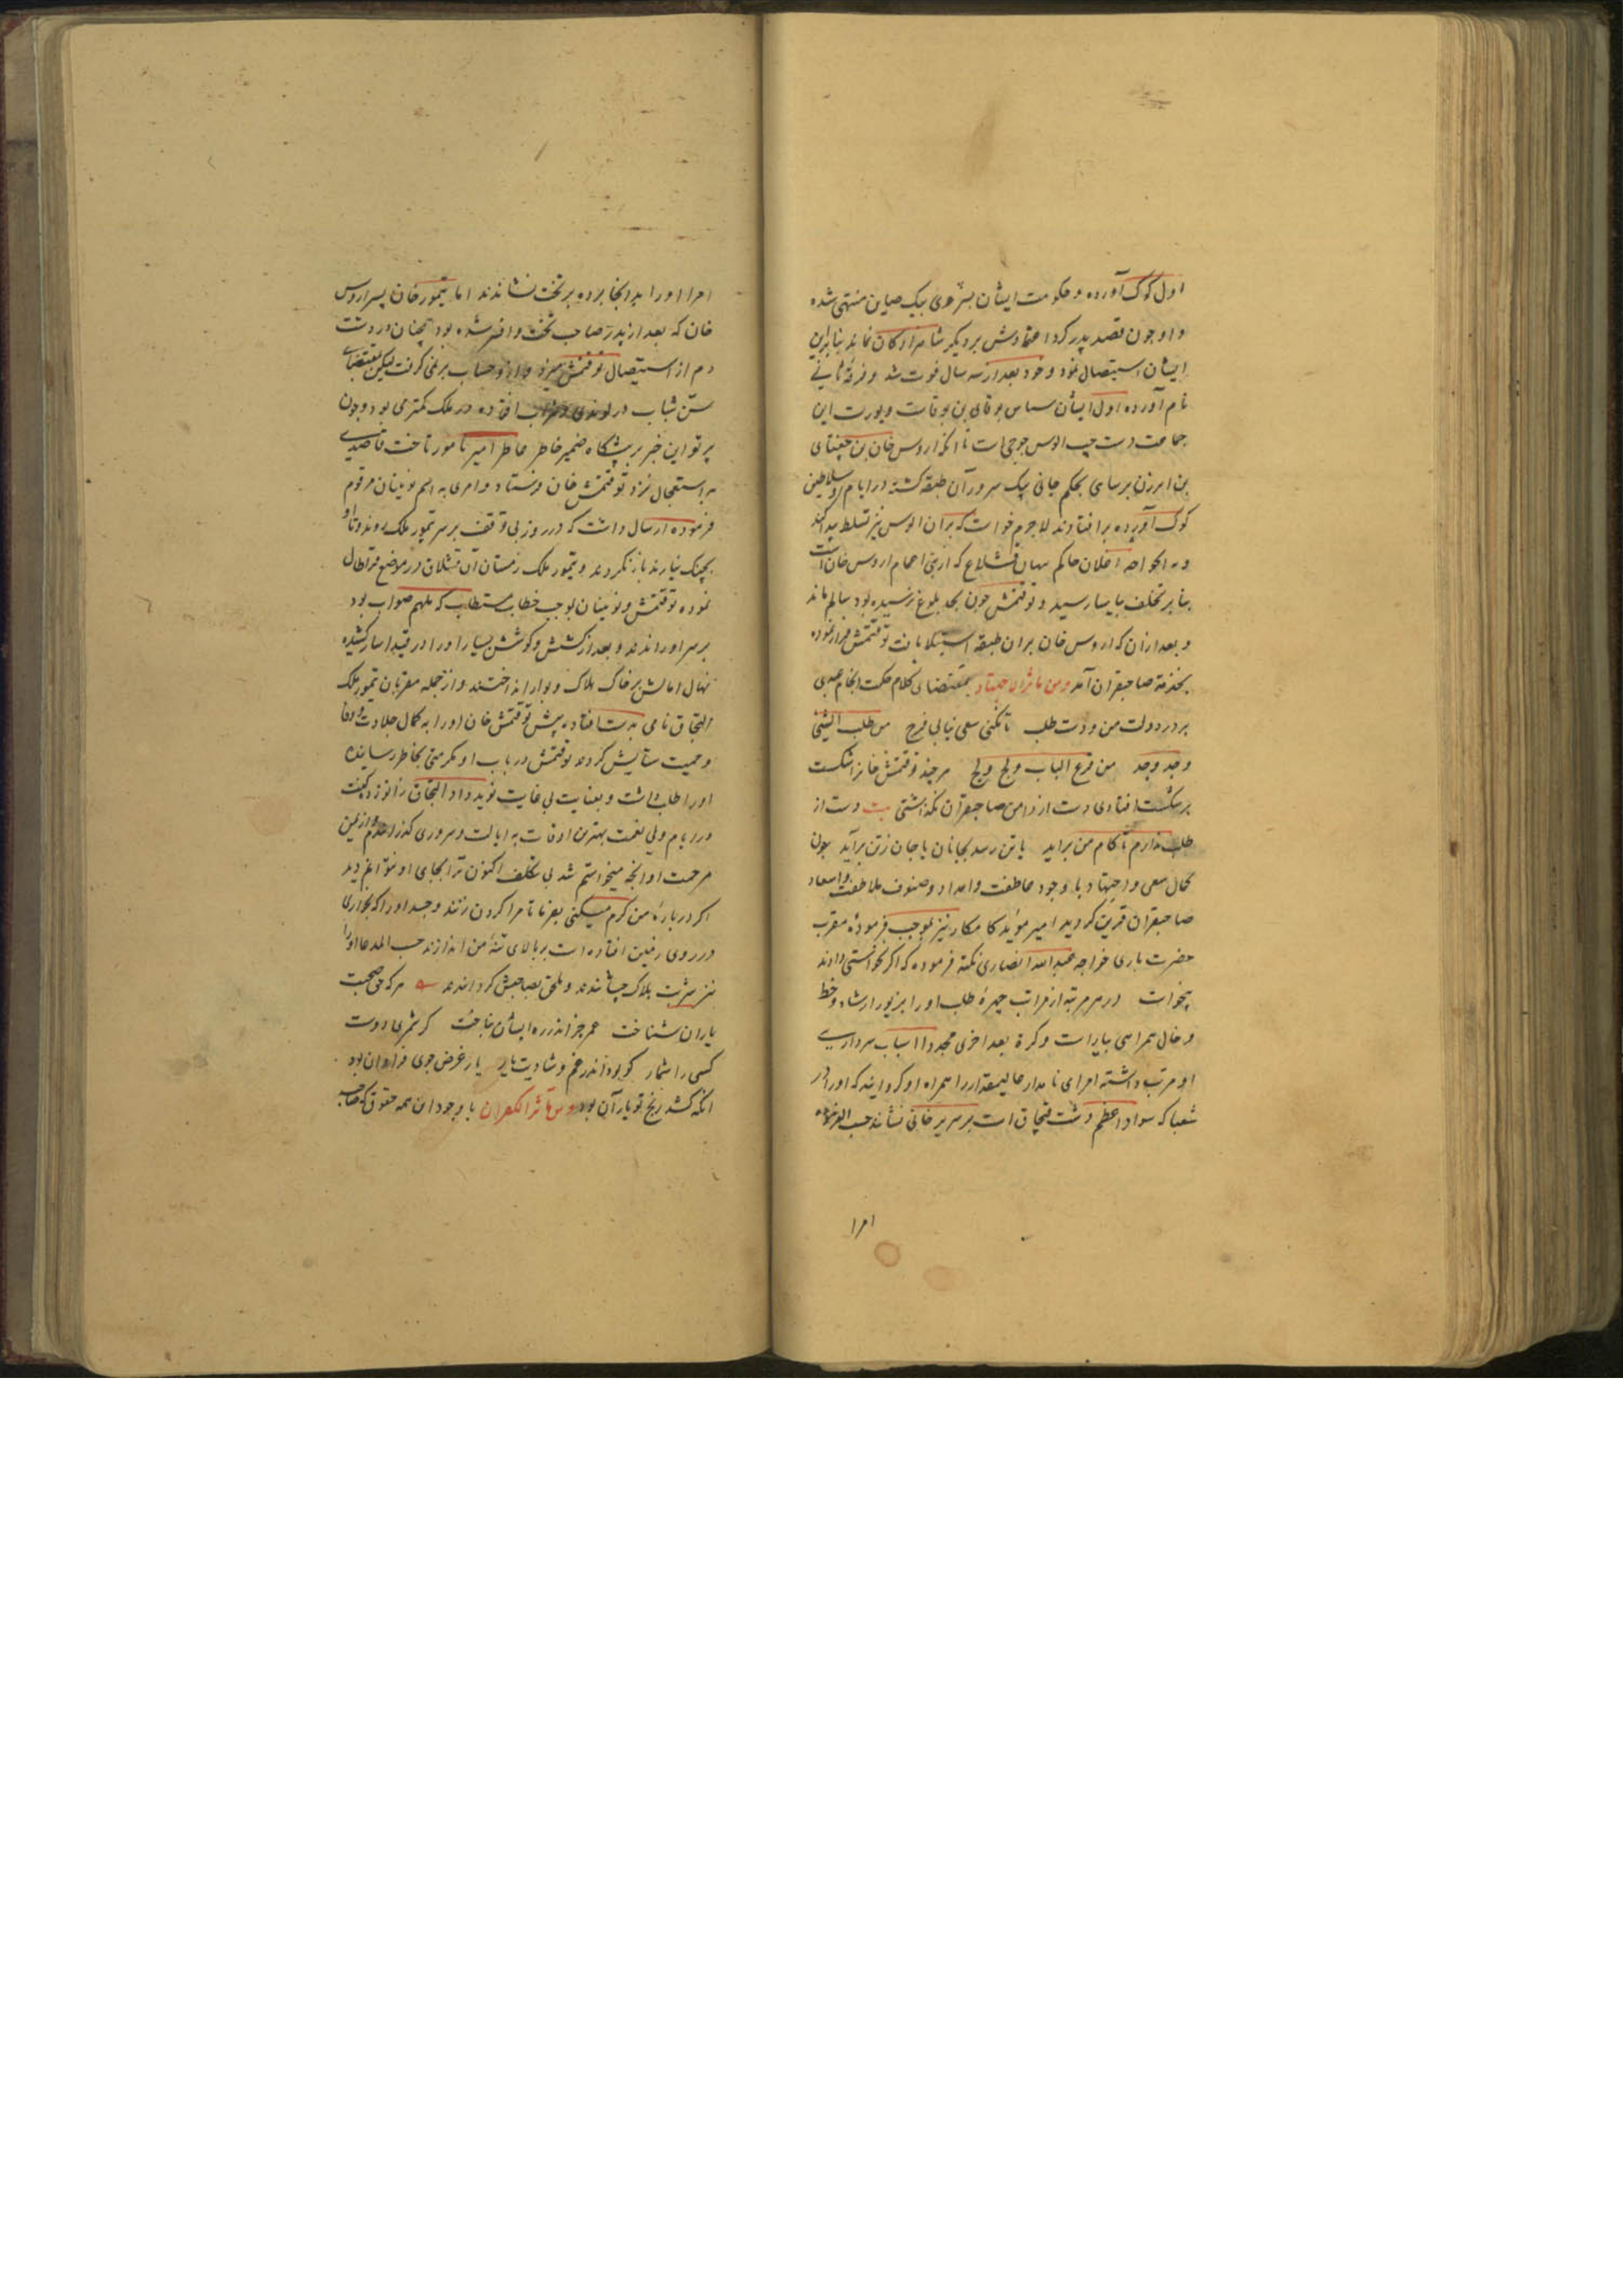 اول کوک آورده و حکومت ایشان بیزدی بیک صاین منتهی شده
و او چون قصد پدر کرد اعتمادش بر دیگر شاهزادگان نماند بنابراین
ایشان استیصال نمود و خود بعد از سه سال فوت شد و فرقه ثانی
نام آورده اول ایشان ساسی بوقای بن بوقات و یورت این
جماعت دست چپ الوس جوجی است تا آنکه اروس خان بن چغتای
بن ابرزن برسای بحکم جانی بیک سرور آن طبقه کشته در ایام او سلاطین
کوک آورده برافتادند لاجرم خواست که بر آن الوس نیز تسلط پیدا کند
و به الخواجه اغلان حاکم که از بنی اعمام اروس خان است
بنابر تخلف بیاسا رسید و توقتمش چون بحد بلوغ نرسیده بود سالم ماند
و بعد از آن که اروس خان بر آن طبقه استیلا یافت توقتمش فرار نموده
بخدمة صاحبقران آمد و من ماثر الاجتهاد بمقتضای کلام حکمت انجام
بر در دولت من و دست طلب تا نکنی سعی نیابی فرح من طلب الشیئ
وجد وجد من قرع الباب ولج ولج هر چند توقتمش خانرا شکست
بر شکست افتادی دست از دامن صاحبقران نگذاشتی بیت دست از
طلب ندارم تا کام من براید یا تن رسد بجانان یا جان ز تن برآید چون
کمال سعی و اجتهاد با وجود عاطفت و امداد و صنوف ملاطفت و اسعاد
صاحبقران قرین کردید امیر مؤید کامکار نیز بموجب فرموده مقرب
حضرت باری خواجه عبدالله انصاری نکته فرموده که اگر نخواستی دادند
نخواست در هر مرتبه از مراتب چهره طلب او را بزیور ارشاد و خط
و خال همراهی بیاراست و کرة بعد اخری مجددا اسباب سرداری
او مرتب داشته امرای نامدار عالیمقدار را همراه او کردانید که او را در
که سواد اعظم دشت قبچاق است بر سریر خانی نشانند حسب الفرموده
امرا
امرا او را بدانجا برده بر تخت نشاندند اما تیمور خان پسر اروس
خان که بعد از پدر صاحب تخت و افسر شده بود همچنان در دشت
دم از استیصال توقتمش میزد و ازو حساب بر نمی گرفت لیکن بمقتضای
سن شباب در لوندی و شراب افتاده در ملک کمتر می بود و چون
پرتو این خبر بر پیشگاه ضمیر خاطر عاطر امیر نامور تاخت قاصدی
به استعجال نزد توقتمش خان فرستاد و امری به اسم نوئینان مرقوم
فرموده ارسال داشت که در روز بی توقف بر سر تیمور ملک روند و تا او
بچنک نیارند باز نکردند و تیمور ملک زمستان آن قشلاق در موضع قراطال
نموده توقتمش و نوئینان بموجب خطاب مستطاب که ملهم صواب بود
بر سر او راندند و بعد از کشش و کوشش بسیار او را در قید اسار کشیده
نهال امالش بر خاک هلاک و بوار انداختند و از جمله مقربان تیمور ملک
التجاق نامی بدست افتاده پیش توقتمش خان او را به کمال جلادت و وفا
و حمیت ستایش کردند توقتمش در باب او مکرمتی بخاطر رسانیده
او را طلب داشت و بعنایت بی غایت نوید داد التجاق زانو زد کفت
در ایام ولی نعمت بهترین اوقات به ایالت و سروری کذرانیدم و از یمن
مرحمت او آنچه میخواستم شد بی تکلف اکنون ترا بجای او نتوانم دید
اکر در باره من کرم میکنی بفرما تا مرا کردن زنند و جسد او را که بخواری
در روی زمین افتاده است بر بالای تنه من اندازند حسب المدعا او را
نیز شربت هلاک چشاندند و ملحق بصاحبش کردانیدند هر که حق صحبت
یاران شناخت عمر جز اندر ره ایشان نباخت کر شمری دوست
کسی را شمار کو بود اندر غم و شادیت یار یار غرض جوی فراوان بود
آنکه کشد رنج تو یار آن بود و من ماثر الکفران با وجود این همه حقوق که صاحب